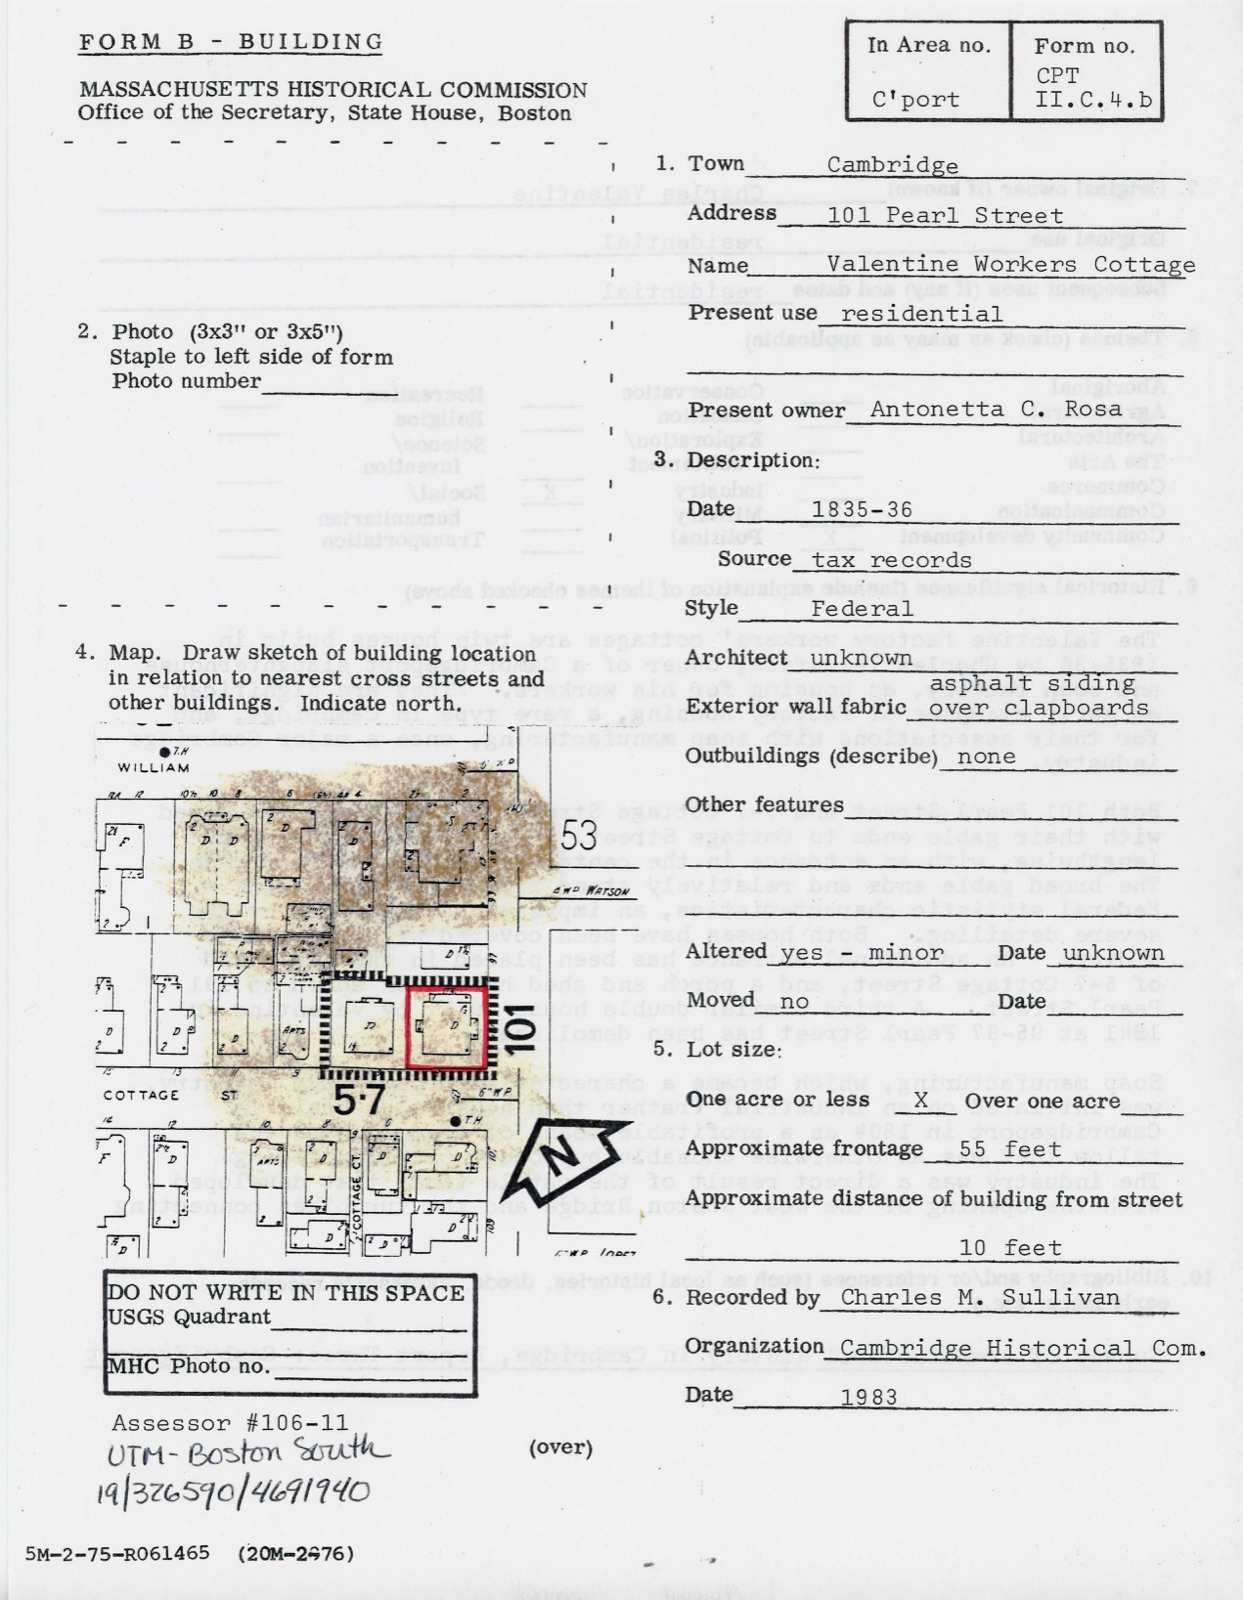 FORM B - BUILDING
MASSACHUSETTS HISTORICAL COMMISSION
Office of the Secretary, State House, Boston
In Area no.
C'port
Form no.
CPT
II.C.4.b
1. Town Cambridge
Address 101 Pearl Street
Name Valentine Workers Cottage
Present use residential
Present owner Antonetta C. Rosa
2. Photo (3x3" or 3x5")
Staple to left side of form
Photo number
3. Description:
Date 1835-36
Source tax records
Style Federal
Architect unknown
Exterior wall fabric asphalt siding
over clapboards
Outbuildings (describe) none
Other features
Altered yes - minor Date unknown
Moved no Date
4. Map. Draw sketch of building location
in relation to nearest cross streets and
other buildings. Indicate north.
T.H
WILLIAM
53
6" W.P. WATSON
101
COTTAGE ST.
5-7
6" W.P.
T.H
COTTAGE CT.
N
5. Lot size:
One acre or less X Over one acre
Approximate frontage 55 feet
Approximate distance of building from street
10 feet
6. Recorded by Charles M. Sullivan
Organization Cambridge Historical Com.
Date 1983
DO NOT WRITE IN THIS SPACE
USGS Quadrant
MHC Photo no.
Assessor #106-11
UTM- Boston South
19/326590/4691940
(over)
5M-2-75-R061465 (20M-2-76)